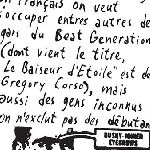 en Français on veut
s'occuper entres autres de
gars du Beat Generation
(dont vient le titre,
Le Baiseur d'Etoile est de
Gregory Corso), mais
aussi des gens inconnus
on n'exclut pas des débutan
BUSHY-
EYEBROWS